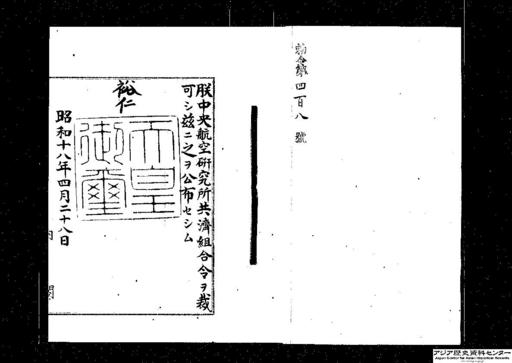 勅令第四百八號
朕中央航空研究所共濟組合令ヲ裁
可シ茲ニ之ヲ公布セシム
裕仁
天皇
御璽
昭和十八年四月二十八日
内
閣
アジア歴史資料センター
Japan Center for Asian Historical Records